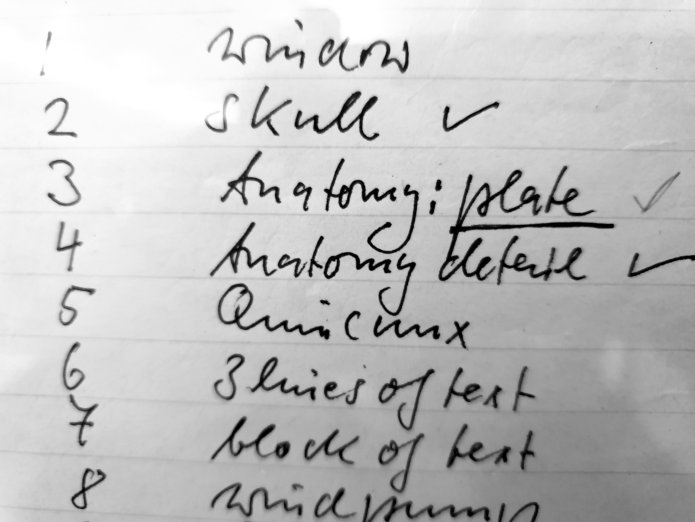 1 window
2 Skull ✓
3 Anatomy: plate ✓
4 Anatomy detail ✓
5 Quincunx
6 3 lines of text
7 block of text
8 windpump